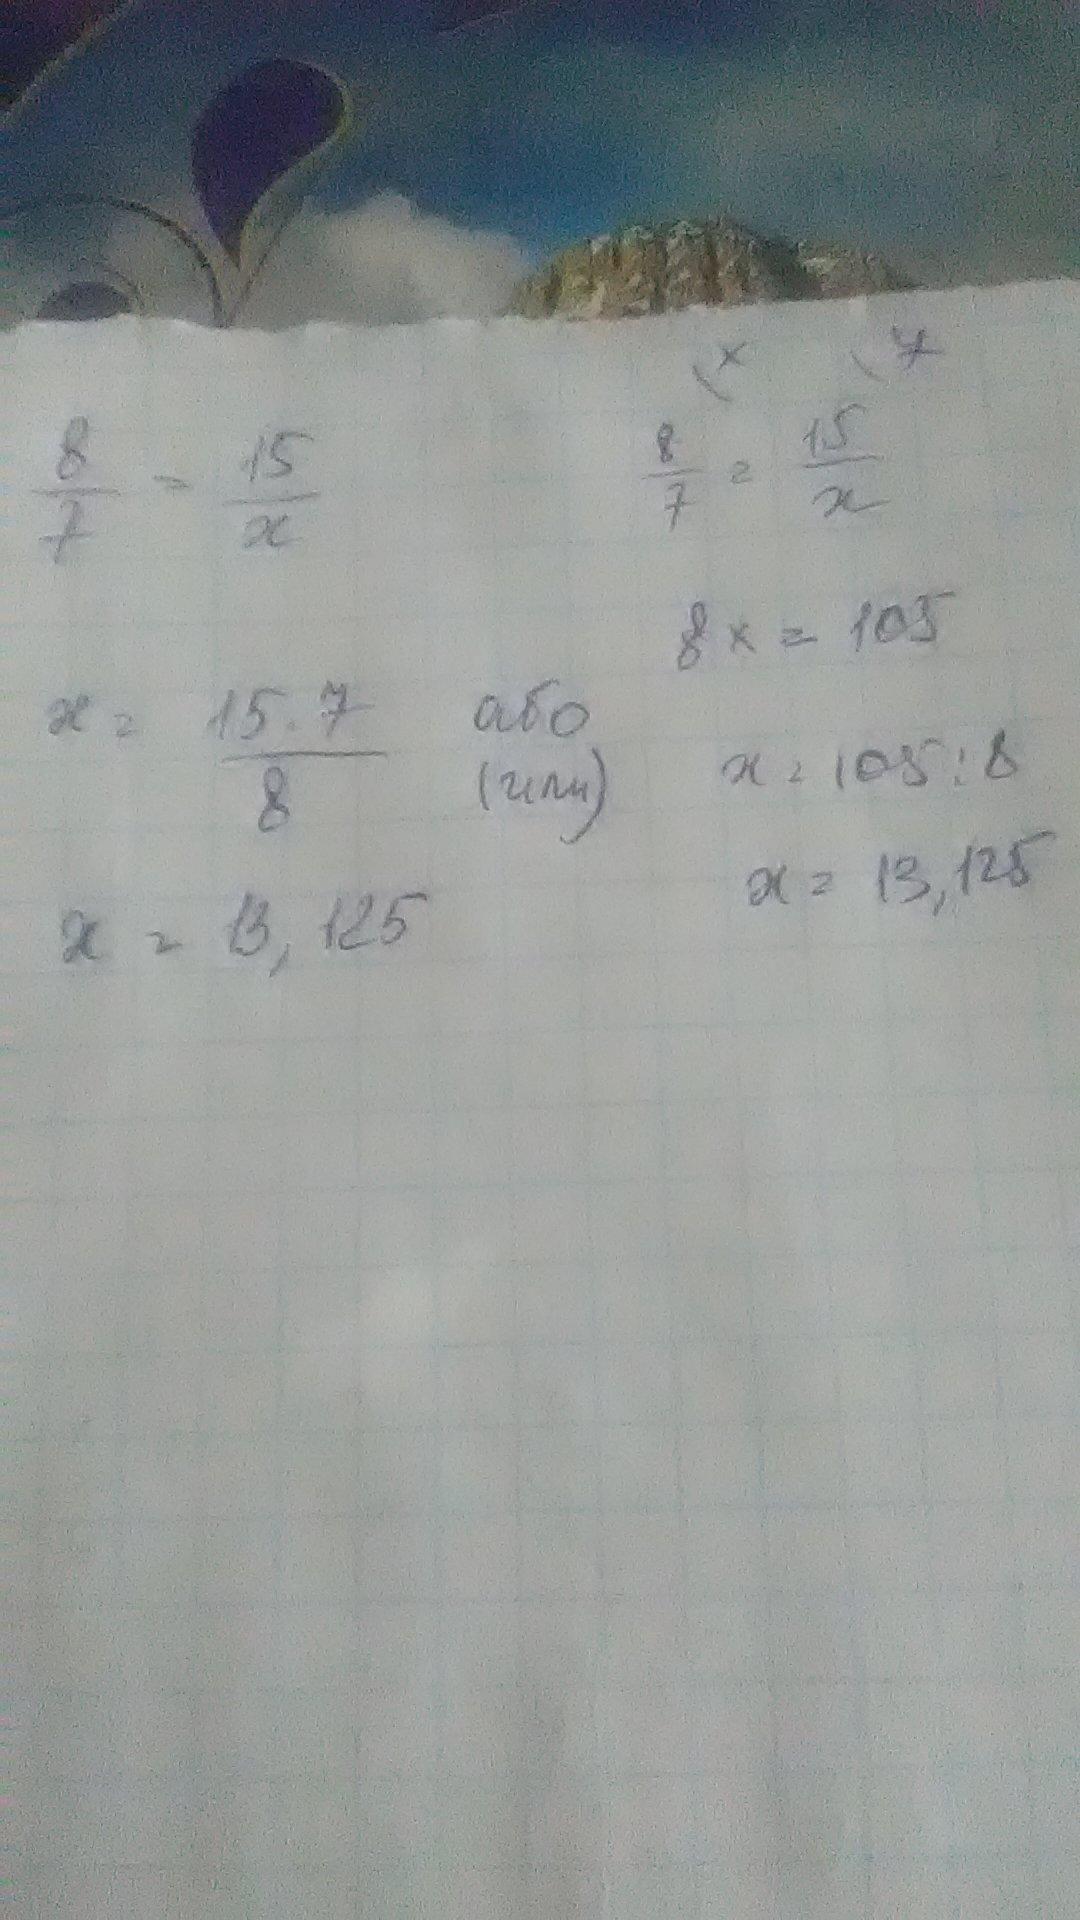 8/7 = 15/x
x = 15·7/8 або
(или)
x = 13,125
\x \7
8/7 = 15/x
8x = 105
x = 105:8
x = 13,125